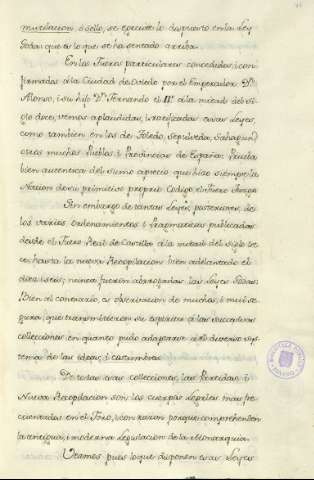 mutilacion i sello, se egecute lo dispuesto en la Ley
Goda: que es lo que se ha sentado arriba.
En los Fueros particulares concedidos, i con-
firmados a la Ciudad de Oviedo por el Emperador Dn.
Alonso, i su hijo Dn. Fernando el IIº a la mitad del si-
glo doce, vemos aplaudidas, i ratificadas estas Leyes,
como tambien en los de Toledo, Sepulveda, Sahagun
otros muchos Pueblos, i Provincias de España: Prueba
bien autentica del sumo aprecio que hizo siempre la
Nacion de su primicias proprio Codigo el Fuero Juzgo
Sin embargo de tantas Leyes posteriores, de
los varios Ordenamientos i Pragmaticas publicadas
desde el Fuero Real de Castilla a la mitad del siglo tre-
ce hasta la nueva Recopilacion bien adelantado el
diez i seis; nunca fueron abrogadas las Leyes Godas:
Bien al contrario, es observacion de muchos, i mui se-
gura, que transmitieron su espiritu a las sucesivas
colecciones en quanto pudo adaptarse al diverso sys-
tema de las ideas, i costumbres.
De todas estas colecciones, las Partidas i
Nueva Recopilacion son los cuerpos legales mas fre-
cuentados en el Foro, i con razon porque comprehenden
la antigua, i moderna Legislacion de la Monarquia.
Veamos pues lo que disponen estas Leyes